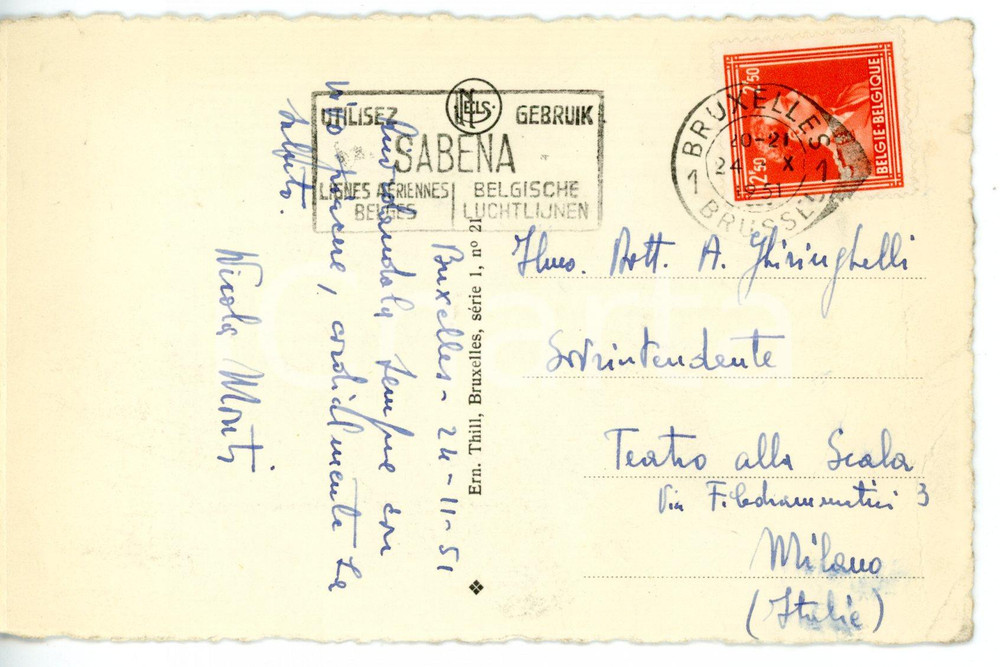 UTILISEZ NELS GEBRUIK
SABENA
LIGNES AÉRIENNES BELGES
BELGISCHE LUCHTLIJNEN
BRUXELLES 1
20-21
24 X
1951
1 BRUSSEL
2,50
2,50
BELGIE-BELGIQUE
Bruxelles - 24-11-51
Ricordandola sempre con
vivo piacere, cordialmente La
saluto.
Nicola Monti
Ern. Thill, Bruxelles, série 1, nº 21
Illus. Dott. A. Ghiringhelli
Sovrintendente
Teatro alla Scala
Via Filodrammatici 3
Milano
(Italie)